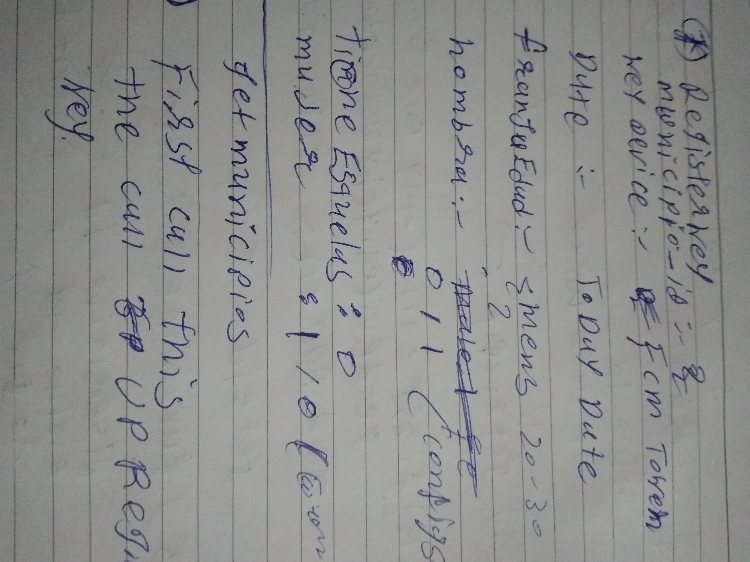 RegisterNey
municipio-id :- 2
Ney Device :- Fcm Token
Date :- Today Date
franjaEdad :- 2 means 20-30
hombre :- male 1 fe
0 1 1 (config
tiene Esquelas : 0
mujer : 1 / 0 (
getmunicipios
First call this
the call UP Reg
Ney.